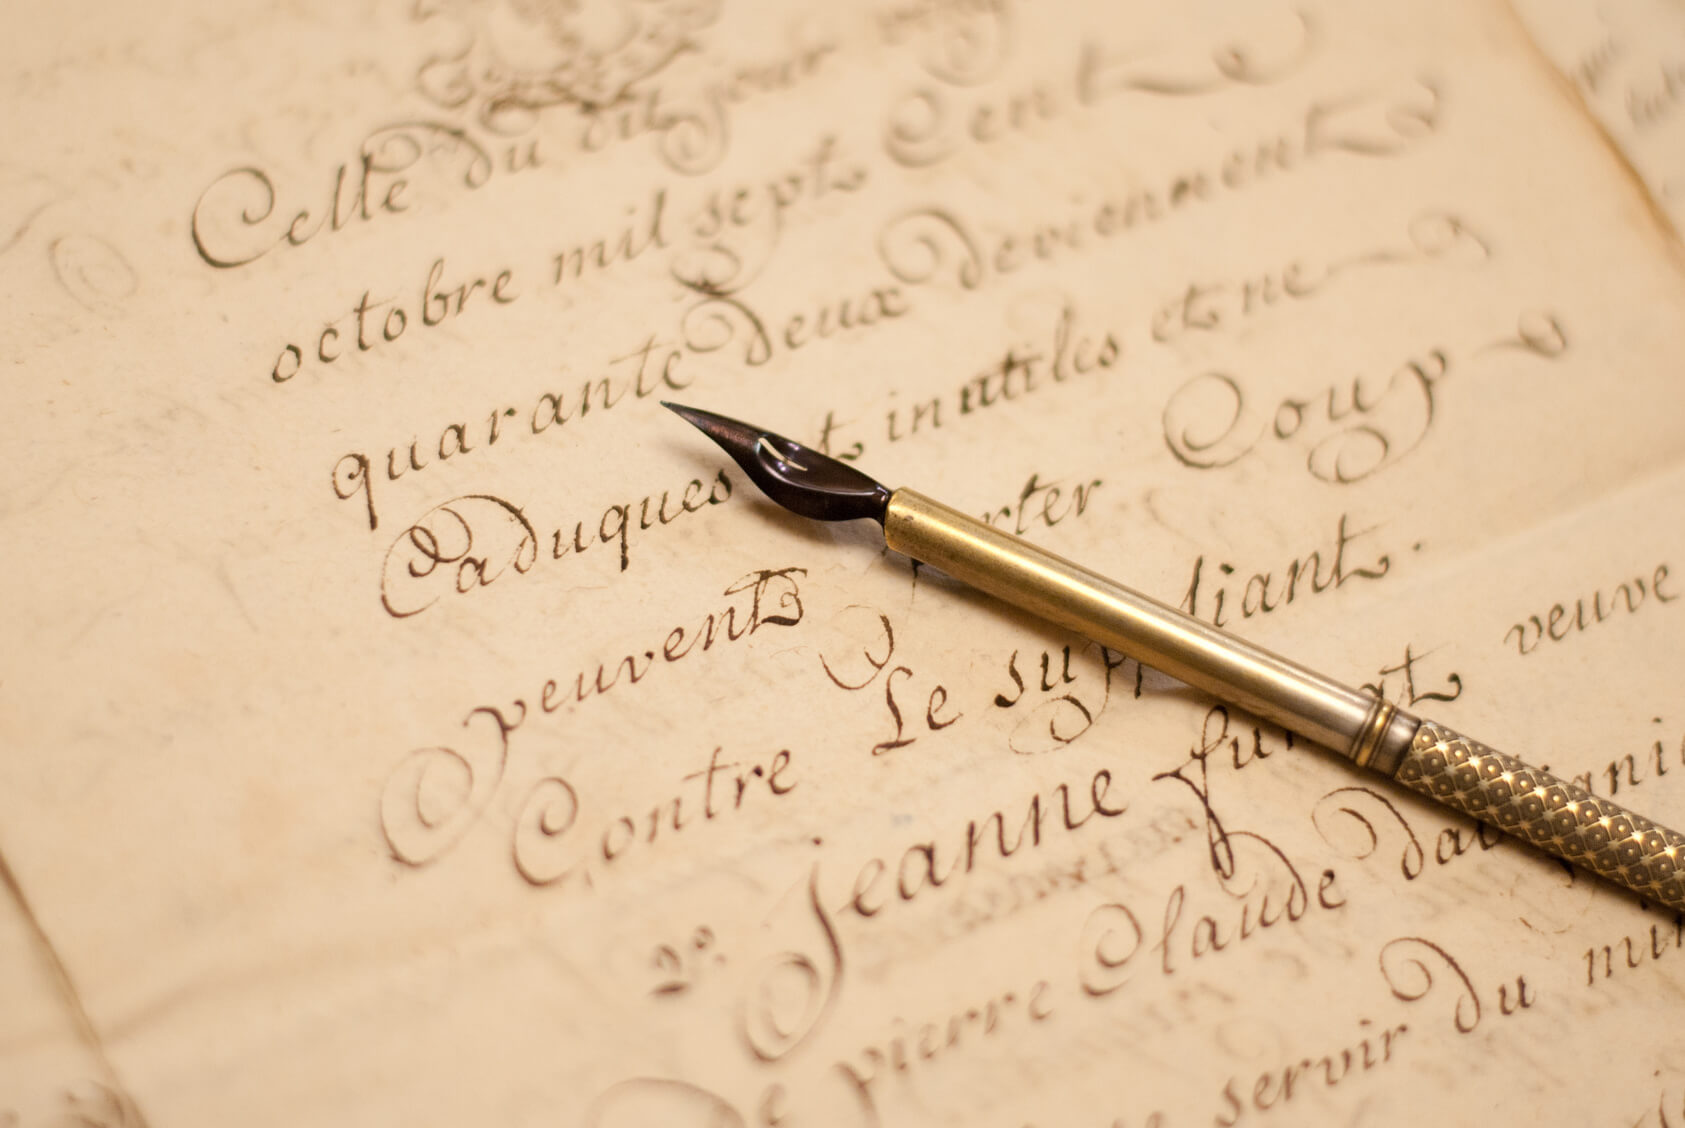 Celle du dit jour
octobre mil sept Cent
quarante deux deviennent
Caduques et inutiles et ne
peuvent porter Coup
Contre Le supliant.
2o. Jeanne furgat veuve
De pierre Claude
servir du